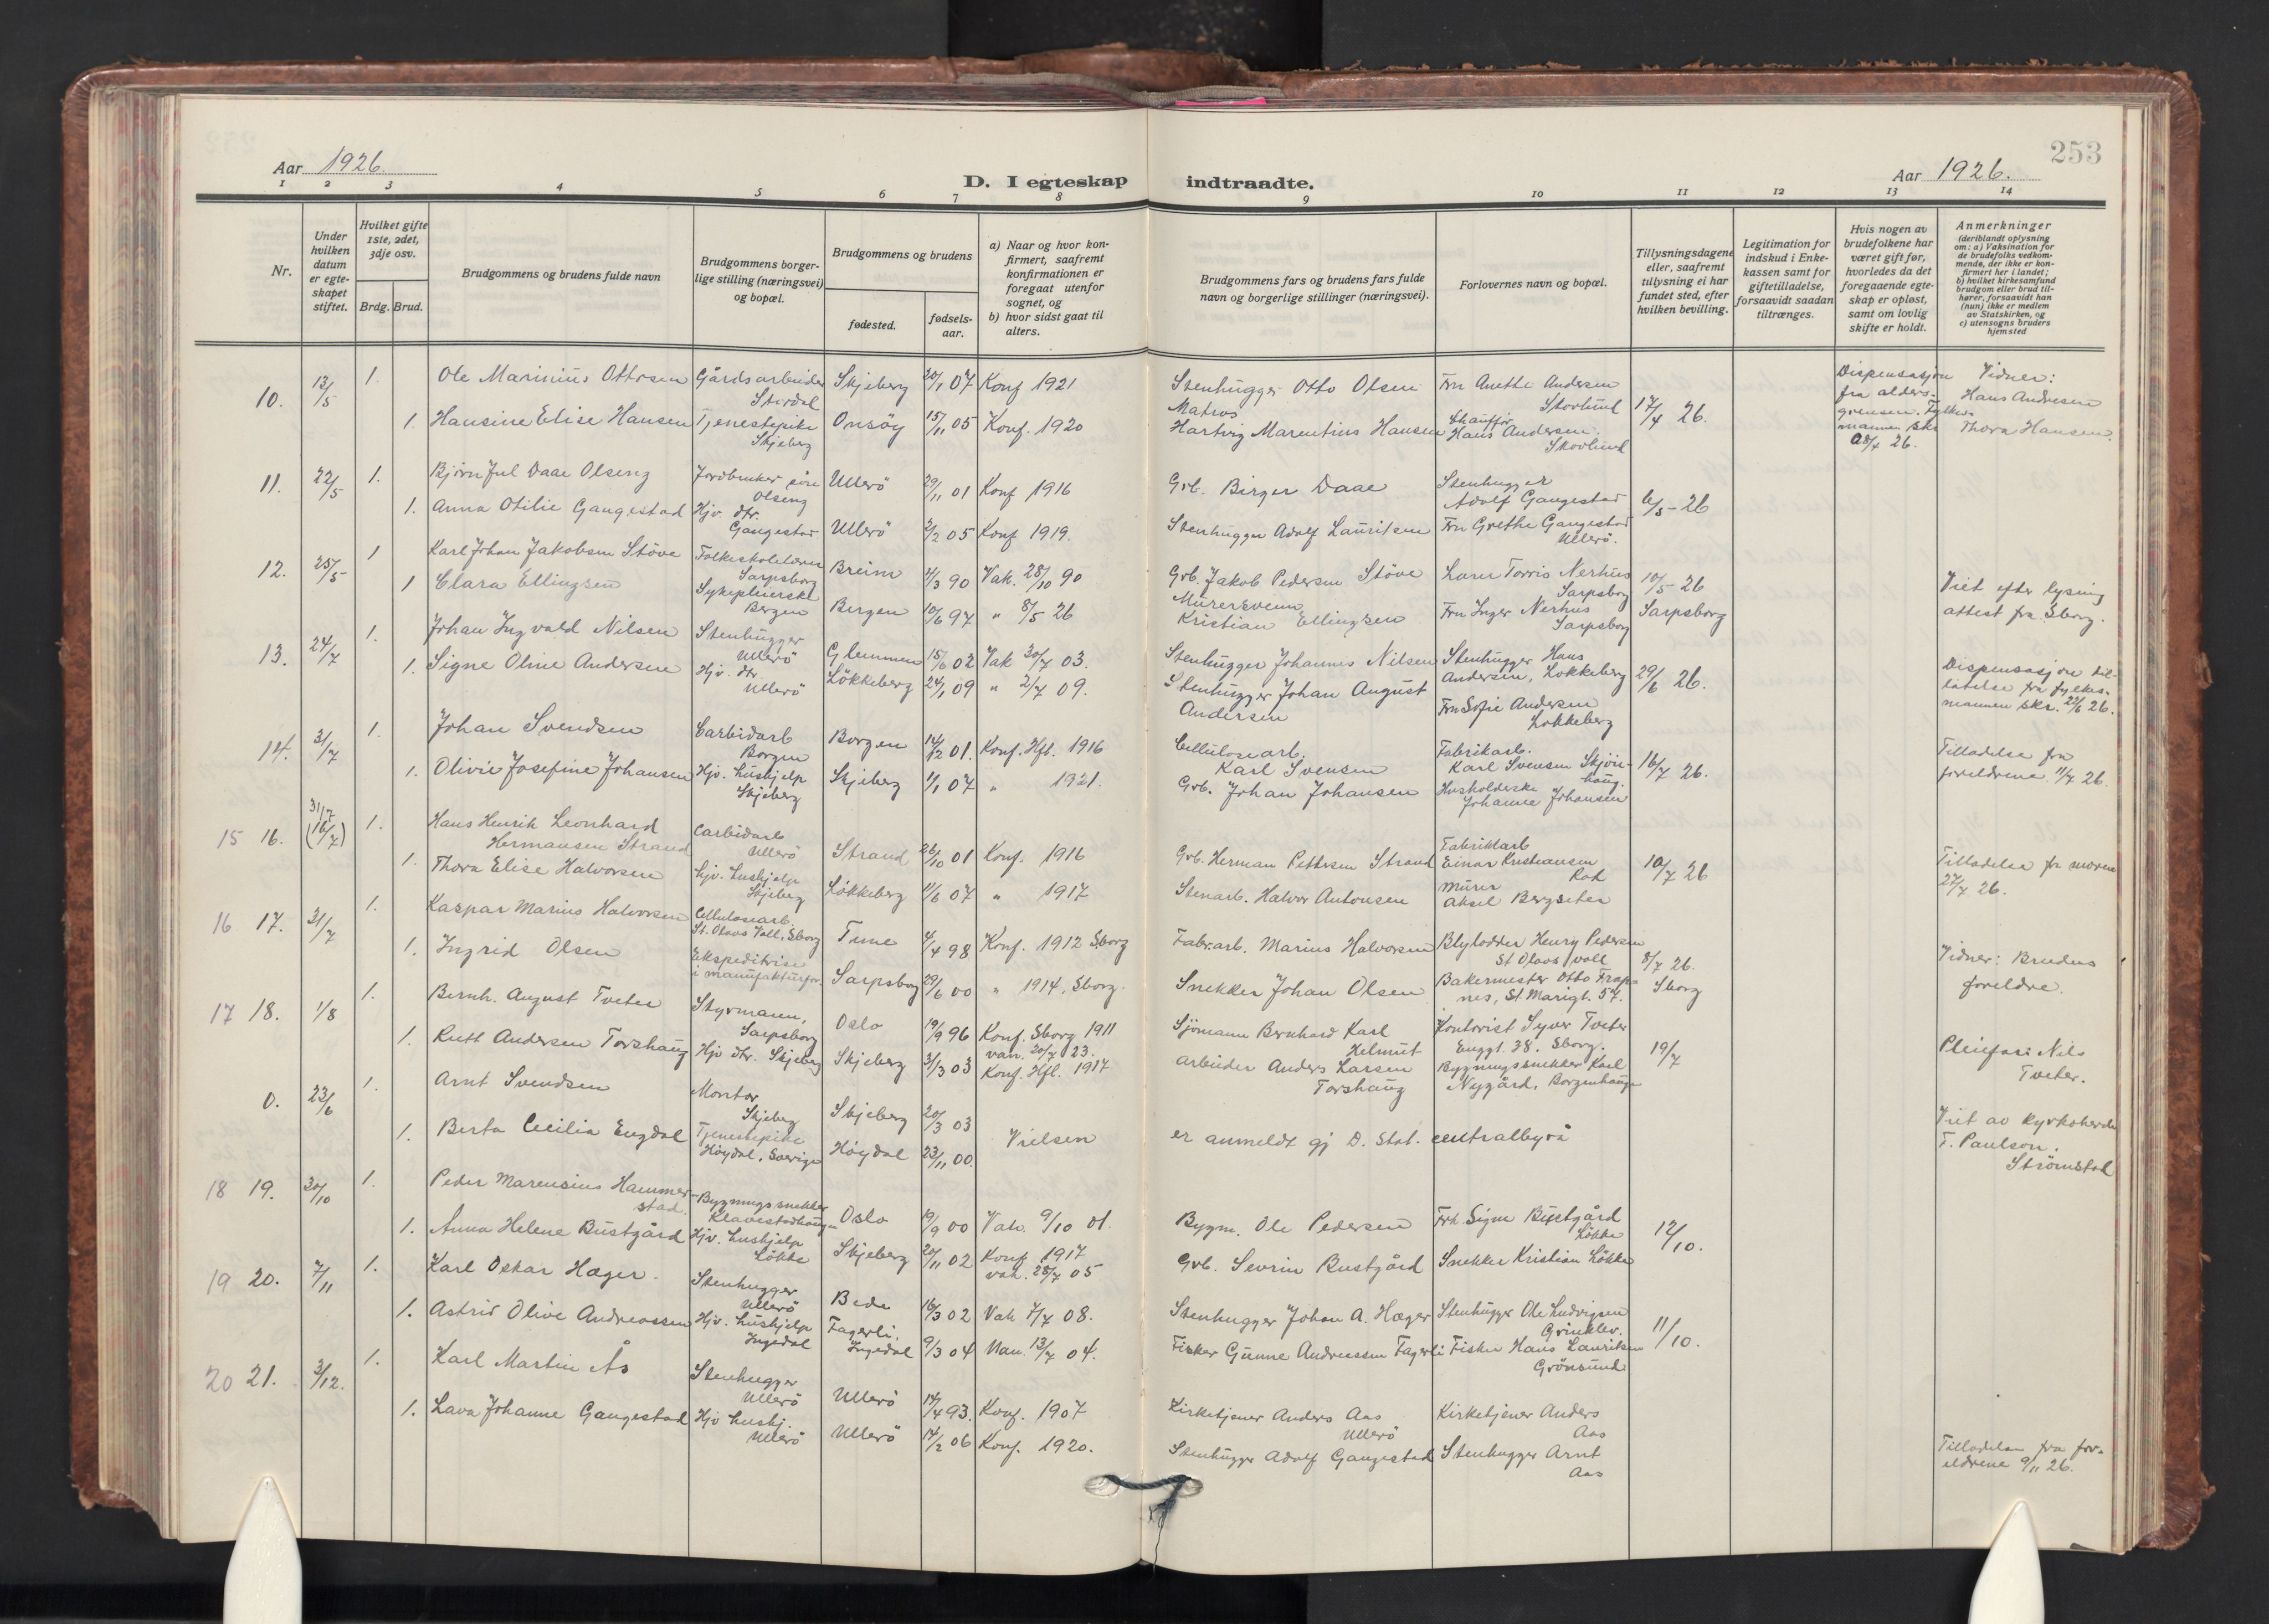 253
Aar 1926.
Aar 1926.
D. I egteskap indtraadte.
1 2 3 4 5 6 7 8 9 10 11 12 13 14
Nr.
Under hvilken datum er egteskapet stiftet.
Hvilket gifte 1ste, 2det, 3dje osv.
Brdg. Brud.
Brudgommens og brudens fulde navn
Brudgommens borgerlige stilling (næringsvei) og bopæl.
Brudgommens og brudens
fødested.
fødselsaar.
a) Naar og hvor konfirmert, saafremt konfirmationen er foregaat utenfor sognet, og
b) hvor sidst gaat til alters.
Brudgommens fars og brudens fars fulde navn og borgerlige stillinger (næringsvei).
Forlovernes navn og bopæl.
Tillysningsdagene eller, saafremt tillysning ei har fundet sted, efter hvilken bevilling.
Legitimation for indskud i Enkekassen samt for giftetilladelse, forsaavidt saadan tiltrænges.
Hvis nogen av brudefolkene har været gift før, hvorledes da det foregaaende egteskap er opløst, samt om lovlig skifte er holdt.
Anmerkninger
(deriblandt oplysning om: a) Vaksination for de brudefolks vedkommende, der ikke er konfirmert her i landet;
b) hvilket kirkesamfund brudgom eller brud tilhører, forsaavidt han (hun) ikke er medlem av Statskirken, og
c) utensogns bruders hjemsted
10. 13/5 1. Ole Marinius Ottosen Gårdsarbeider Skjeberg 20/1 07 Konf 1921 Stenhugger Otto Olsen Fru Anette Andersen Skovlund 17/4 26.
Dispensasjon fra aldersgrensen. Fylkesmannen skr 28/4 26.
Vidner: Hans Andresen Thora Hansen.
1. Hansine Elise Hansen Tjenestepike Skjeberg Onsöy 15/11 05 Konf. 1920 Matros Hartvig Marentius Hansen Chauffør Hans Andersen. Skovlund
11. 22/5 1. Bjørn Jul Daae Olseng Jordbruker Olseng Ullerö 29/11 01 Konf 1916 Grb. Birger Daae Stenhugger Adolf Gangestad 6/5 - 26
1. Anna Otilie Gangestad Hjv. dtr. Gangestad Ullerö 3/2 05 Konf 1919. Stenhugger Adolf Lauritsen Fru Grethe Gangestad Ullerö.
12. 25/5 1 Karl Johan Jakobsen Stöve Folkeskolelærer Sarpsborg Breim 4/3 90 Vak. 28/10 90 Grb. Jakob Pedersen Stöve Lærer Torris Nerhus Sarpsborg 10/5 26 Sarpsborg
Viet efter lysning attest fra Sborg.
1 Clara Ellingsen Sykepleierske Bergen Bergen 10/6 97 " 8/5 26 Murersvenn Kristian Ellingsen Fru Inger Nerhus Sarpsborg
13. 24/7 1. Johan Ingvald Nilsen Stenhugger Ullerö Glemmen 15/6 02 Vak 30/7 03. Stenhugger Johannes Nilsen Stenhugger Hans Andersen, Lökkeberg 29/6 26.
Dispensasjon tillatelse fra fylkesmannen skr. 22/6 26.
1. Signe Oline Andersen Hjv. dtr. Ullerö Lökkeberg 24/1 09 " 2/7 09. Stenhugger Johan August Andersen Fru Sofie Andersen Lökkeberg
14. 31/7 1. Johan Svendsen Carbidarb Borgen Borgen 14/2 01. Konf. Hfl. 1916 Cellulosearb. Karl Svensen Fabrikarb. Karl Svensen Skjörshaug. 16/7 26.
Tilladelse fra foreldrene 11/7 26.
1. Olivie Josefine Johansen Hjv. hushjelp Skjeberg Skjeberg 1/1 07 " 1921. Grb. Johan Johansen Husholderske Johanne Johansen
15 16. 31/7 (16/7) 1. Hans Henrik Leonhard Hermansen Strand Carbidarb Ullerö Strand 26/10 01 Konf. 1916 Grb. Herman Pettersen Strand Fabrikkarb Einar Kristiansen Rod 10/7 26
Tilladelse fr moren 27/7 26.
1. Thora Elise Halvorsen hjv. hushjelp Skjeberg Lökkeberg 11/6 07 " 1917 Stenarb. Halvor Antonsen Murer Aksel Bergseter
16 17. 31/7 1. Kaspar Marius Halvorsen Cellulosearb. St. Olavs Voll. Sborg Tune 4/4 98 Konf. 1912 Sborg Fabr.arb. Marius Halvorsen Blylodder Henry Pedersen St Olavs voll 8/7 26. Sborg
Vidner: Brudens foreldre.
1. Ingrid Olsen Ekspeditrise i manufakturfor. Sarpsborg 29/6 00 " 1914, Sborg. Snekker Johan Olsen Bakermester Otto Frapnes, St. Marigt. 57.
17 18. 1/8 1. Bernh. August Tveter Styrmann, Sarpsborg Oslo 19/9 96 Konf. Sborg 1911 Sjömann Bernhard Karl Helmut Kontorist Syver Tveter Enggt. 38. Sborg. 19/7
Pleiefar: Nils Tveter.
1. Rutt Andersen Torshaug Hjv dtr. Skjeberg Skjeberg 3/3 03 Konf. Hfl. 1917 Arbeider Anders Larsen Torshaug Bygningssnekker Karl Nygård, Borgenhaugen
0. 23/6 1. Arnt Svendsen Montør Skjeberg Skjeberg 20/3 03
1. Berta Cecilia Engdal Tjenestepike Höydal, Sverige Höydal 23/11 00. Vielsen er anmeldt gj D. Stat. centralbyrå
Viet av Kyrkoherde T. Paulson. Strömstad
18 19. 30/10 1. Peder Marensius Hammerstad. Bygningssnekker Klavestadhaugen Oslo 19/9 00 Vak. 9/10 01. Bygm. Ole Pedersen Frk Signe Bustgård Lökke 12/10.
1. Anna Helene Bustgård Hjv. hushjelp Lökke Skjeberg 20/11 02 Konf 1917 vak. 28/7 05 Grb. Sevrin Bustgård Snekker Kristian Lökke
19 20. 7/11 1. Karl Oskar Hæger. Stenhugger Ullerö Bede 16/3 02 Vak 7/7 08. Stenhugger Johan A. Hæger Stenhugger Ole Ludvigsen 11/10.
1. Astrid Olive Andreassen Hjv. hushjelp Ingedal Fagerli, Ingedal 9/3 04 13/7 04. Fisker Gunne Andreassen Fagerli Fisker Hans Lauritsen Grönsund
20 21. 3/12. 1. Karl Martin Ås Stenhugger Ullerö Ullerö 17/4 93. Konf. 1907 Kirketjener Anders Aas Ullerö Kirketjener Anders Aas
1. Lava Johanne Gangestad Hjv hushj. Ullerö Ullerö 14/2 06 Konf. 1920. Stenhugger Adolf Gangestad Stenhugger Arnt Aas
Tilladelse fra foreldrene 9/11 26.